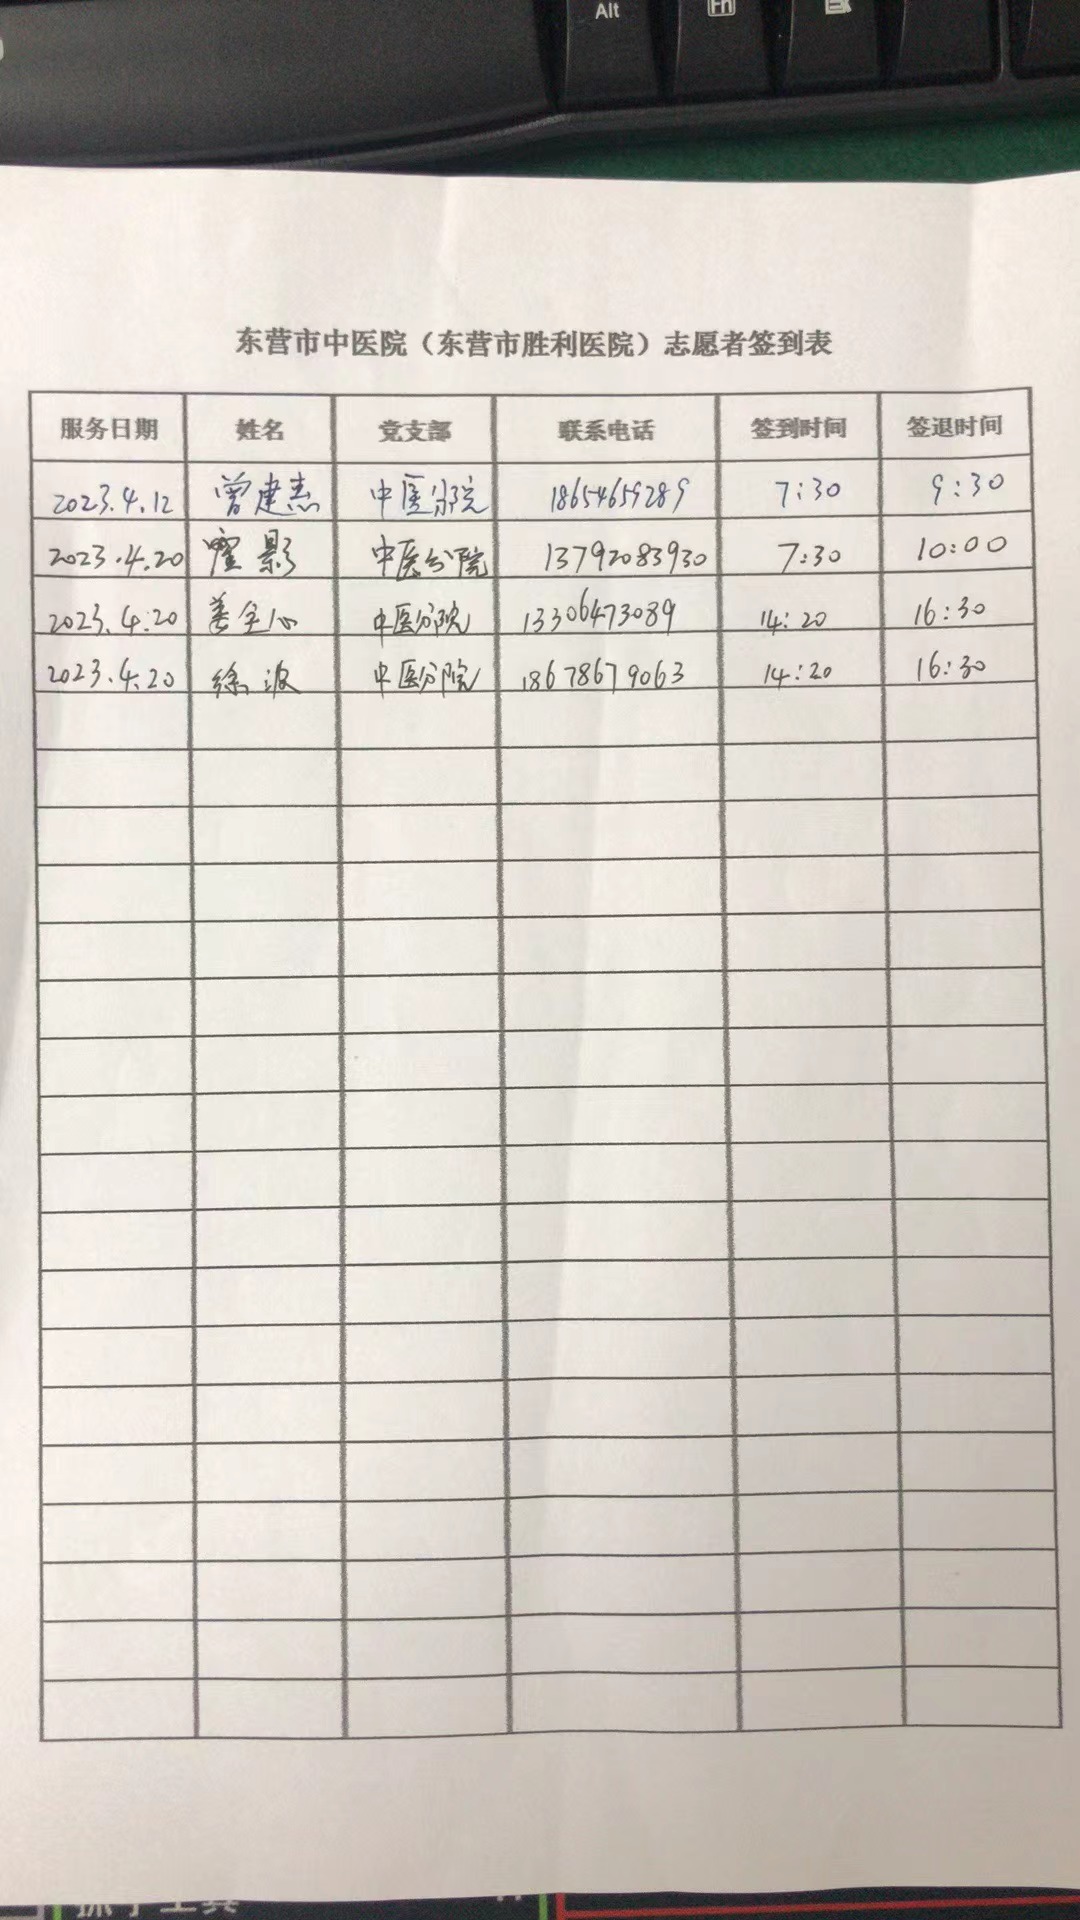 Alt
Fn
东营市中医院（东营市胜利医院）志愿者签到表
服务日期 姓名 党支部 联系电话 签到时间 签退时间
2023.4.12 曾建杰 中医分院 18654659289 7:30 9:30
2023.4.20 霍影 中医分院 13792083930 7:30 10:00
2023.4.20 中医分院 13306473089 14:20 16:30
2023.4.20 徐波 中医分院 18678679063 14:20 16:30